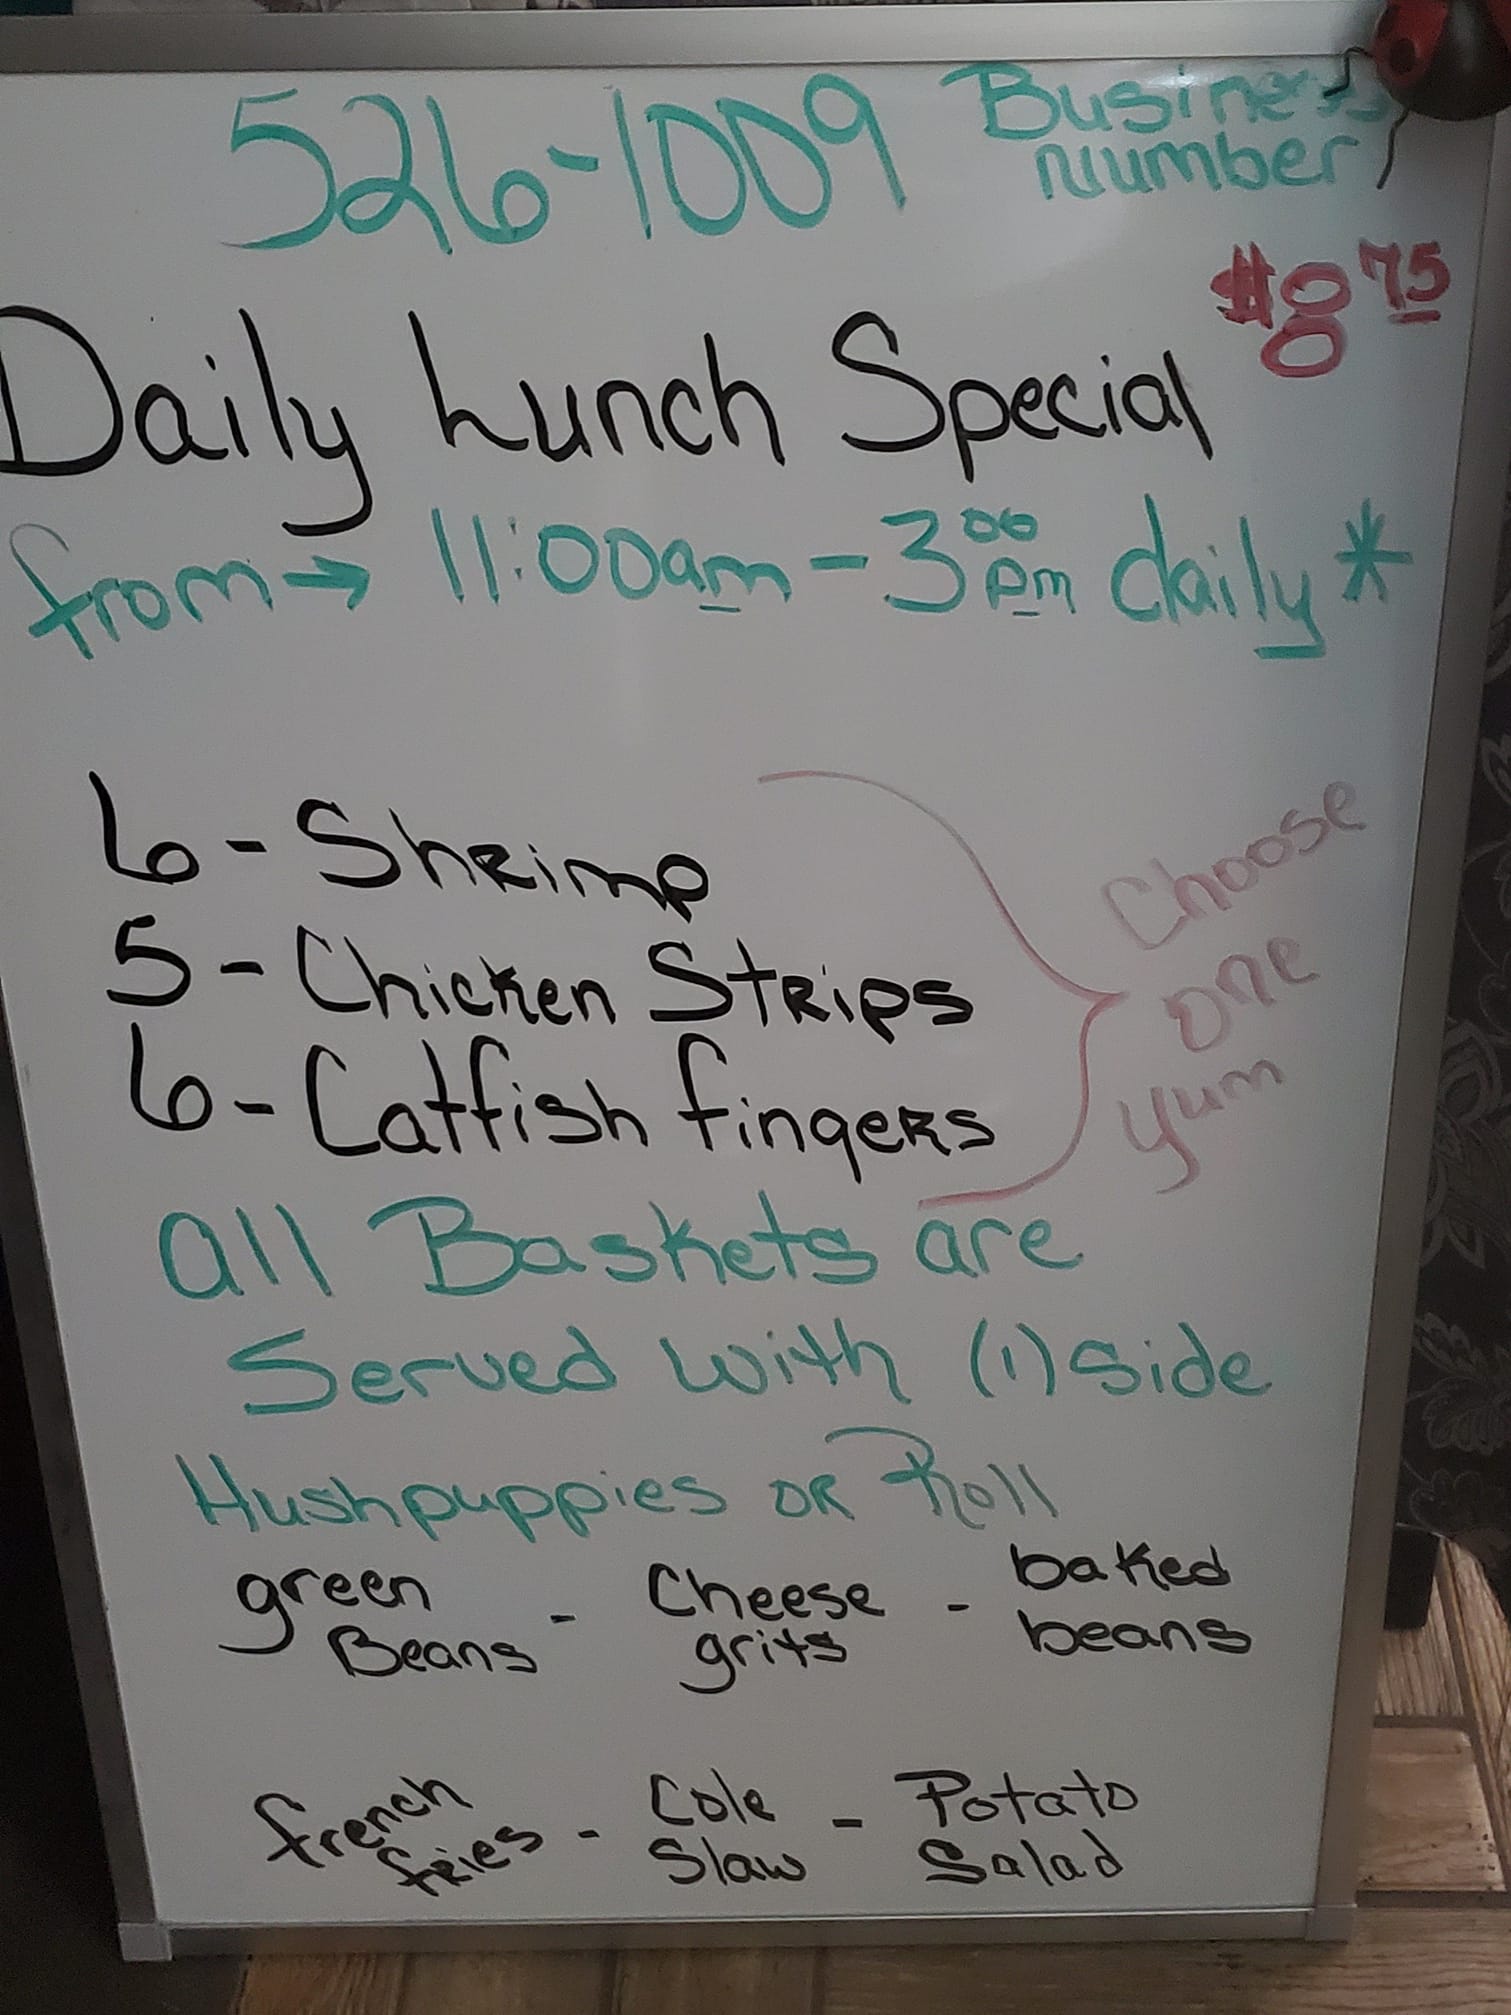 526-1009 Business
number
$8 75
Daily Lunch Special
from → 11:00am - 3 00 pm daily *
6 - Shrimp
5 - Chicken Strips
6 - Catfish fingers
Choose
one
yum
all Baskets are
Served with (1) side
Hushpuppies or Roll
green Beans - Cheese grits - baked beans
french fries - Cole Slaw - Potato Salad